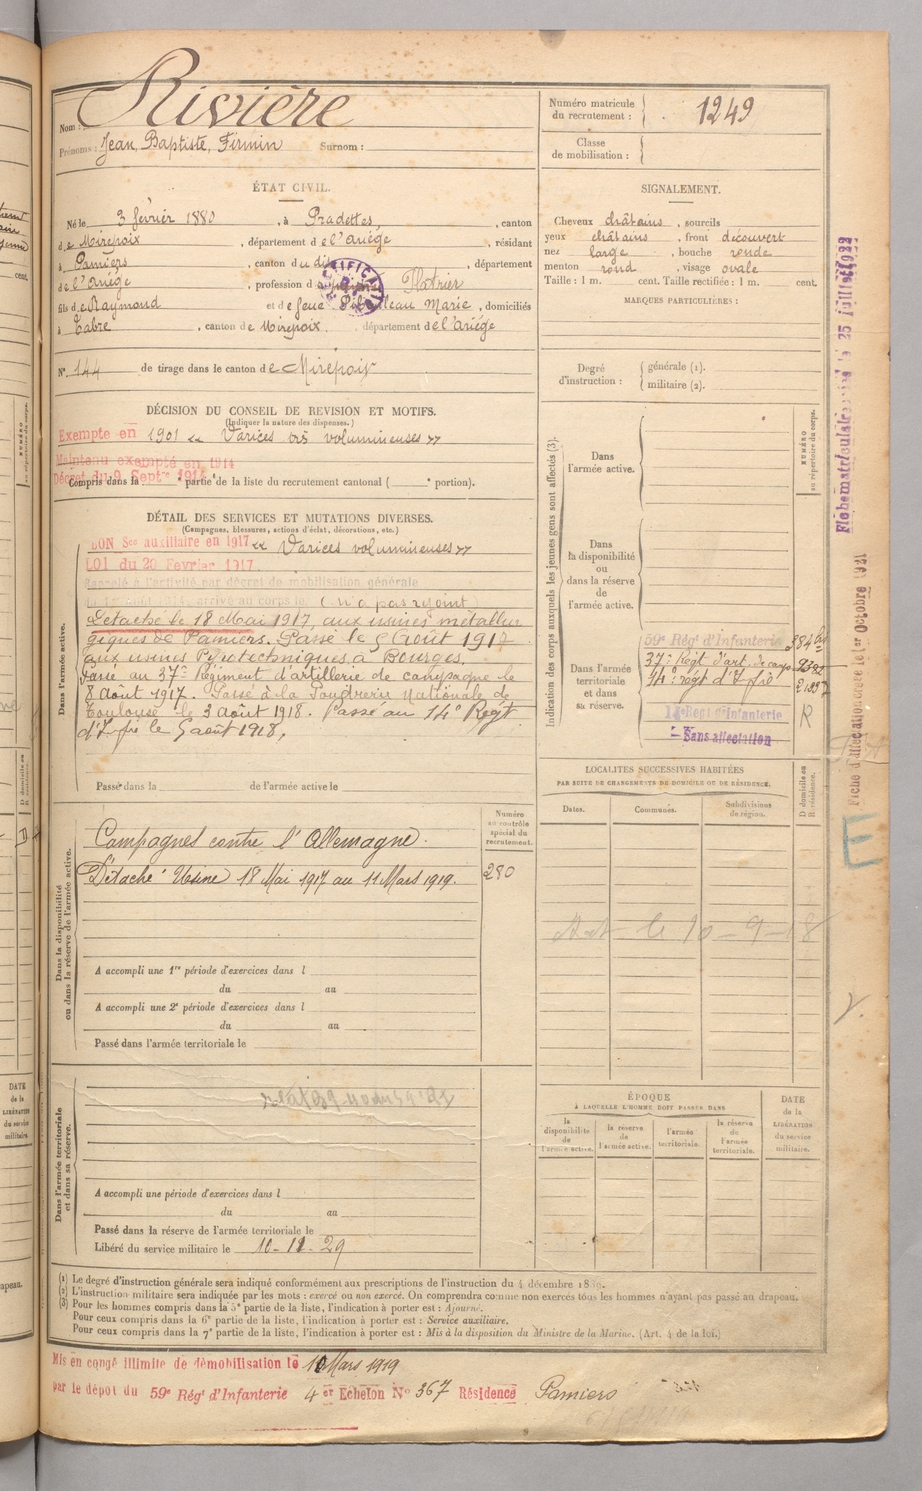 Nom : Rivière
Prénoms : Jean, Baptiste, Firmin Surnom :
Numéro matricule
du recrutement : 1249
Classe
de mobilisation :
ÉTAT CIVIL.
Né le 3 février 1880, à Pradettes, canton
de Mirepoix, département de l'Ariège, résidant
à Pamiers, canton du dit, département
de l'Ariège, profession d
fils de Raymond et de feue Marie, domiciliés
à Tabre, canton de Mirepoix. département de l'Ariège
N° 144 de tirage dans le canton de Mirepoix
SIGNALEMENT.
Cheveux châtains, sourcils
yeux châtains, front découvert
nez large, bouche ronde
menton rond, visage ovale
Taille : 1 m. cent. Taille rectifiée : 1 m. cent.
MARQUES PARTICULIÈRES :
Degré
d'instruction :
générale (1).
militaire (2).
DÉCISION DU CONSEIL DE REVISION ET MOTIFS.
(Indiquer la nature des dispenses.)
Exempté en 1901 « Varices très volumineuses »
Maintenu exempté en 1914
Décret du 9 Septre 1914
Compris dans la e partie de la liste du recrutement cantonal ( e portion).
DÉTAIL DES SERVICES ET MUTATIONS DIVERSES.
(Campagnes, blessures, actions d'éclat, décorations, etc.)
BON Sce auxiliaire en 1917 « Varices volumineuses »
LOI du 20 Fevrier 1917.
Rappelé à l'activité par décret de mobilisation générale
du 1er août 1914, arrivé au corps le (n'a pas rejoint)
Détaché le 18 Mai 1917, aux usines métallur
giques de Pamiers. Passé le 5 Août 1917
aux usines Pyrotechniques à Bourges.
Passé au 37e Régiment d'artillerie de campagne le
8 Août 1917. Passé à la Poudrerie Nationale de
Toulouse le 3 août 1918. Passé au 14e Regt
d'Ifrie le 5 août 1918.
Passé dans la de l'armée active le
Dans l'armée active.
Indication des corps auxquels les jeunes gens sont affectés (3).
NUMÉRO
au répertoire du corps.
Dans
l'armée active.
Dans
la disponibilité
ou
dans la réserve
de
l'armée active.
Dans l'armée
territoriale
et dans
sa réserve.
59e Régt d'Infanterie
37e Régt d'art. de camp.
14e régt d'Ifrie
14e Regt d'Infanterie R
Sans affectation
Campagnes contre l'Allemagne.
Détaché Usine 18 Mai 1917 au 11 Mars 1919.
Numéro
au contrôle
spécial du
recrutement.
280
Dans la disponibilité
ou dans la réserve de l'armée active.
A accompli une 1re période d'exercices dans l
du au
A accompli une 2e période d'exercices dans l
du au
Passé dans l'armée territoriale le
LOCALITÉS SUCCESSIVES HABITÉES
PAR SUITE DE CHANGEMENTS DE DOMICILE OU DE RÉSIDENCE.
Dates.
Communes.
Subdivisions
de région.
D domicile ou
R résidence.
Dans l'armée territoriale
et dans sa réserve.
A accompli une période d'exercices dans l
du au
Passé dans la réserve de l'armée territoriale le
Libéré du service militaire le 10-11-29
ÉPOQUE
À LAQUELLE L'HOMME DOIT PASSER DANS
la
disponibilité
de
l'armée active.
la réserve
de
l'armée active.
l'armée
territoriale.
la réserve
de
l'armée
territoriale.
DATE
de la
LIBÉRATION
du service
militaire.
(1) Le degré d'instruction générale sera indiqué conformément aux prescriptions de l'instruction du 4 décembre
(2) L'instruction militaire sera indiquée par les mots : exercé ou non exercé. On comprendra comme non exercés tous les hommes n'ayant pas passé au drapeau.
(3) Pour les hommes compris dans la 5e partie de la liste, l'indication à porter est : Ajourné.
Pour ceux compris dans la 6e partie de la liste, l'indication à porter est : Service auxiliaire.
Pour ceux compris dans la 7e partie de la liste, l'indication à porter est : Mis à la disposition du Ministre de la Marine. (Art. 4 de la loi.)
Mis en congé illimité de démobilisation le 10 Mars 1919
par le dépôt du 59e Régt d'Infanterie 4er Echelon No 367 Résidence Pamiers
DATE
de la
LIBÉRATION
du service
militaire.
E